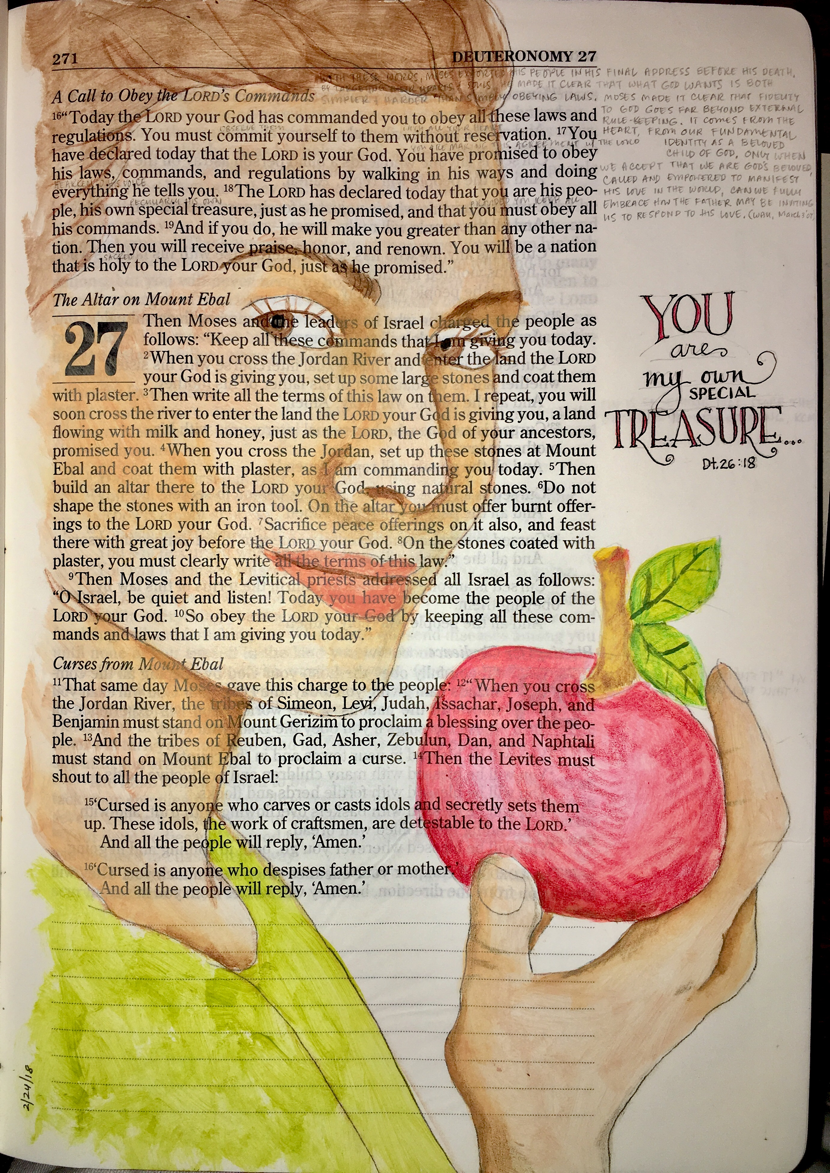 271
DEUTERONOMY 27
A Call to Obey the LORD's Commands
16“Today the LORD your God has commanded you to obey all these laws and
regulations. You must commit yourself to them without reservation. 17You
have declared today that the LORD is your God. You have promised to obey
his laws, commands, and regulations by walking in his ways and doing
everything he tells you. 18The LORD has declared today that you are his peo-
ple, his own special treasure, just as he promised, and that you must obey all
his commands. 19And if you do, he will make you greater than any other na-
tion. Then you will receive praise, honor, and renown. You will be a nation
that is holy to the LORD your God, just as he promised.”
The Altar on Mount Ebal
27
Then Moses and the leaders of Israel charged the people as
follows: “Keep all these commands that I am giving you today.
2When you cross the Jordan River and enter the land the LORD
your God is giving you, set up some large stones and coat them
with plaster. 3Then write all the terms of this law on them. I repeat, you will
soon cross the river to enter the land the LORD your God is giving you, a land
flowing with milk and honey, just as the LORD, the God of your ancestors,
promised you. 4When you cross the Jordan, set up these stones at Mount
Ebal and coat them with plaster, as I am commanding you today. 5Then
build an altar there to the LORD your God, using natural stones. 6Do not
shape the stones with an iron tool. On the altar you must offer burnt offer-
ings to the LORD your God. 7Sacrifice peace offerings on it also, and feast
there with great joy before the LORD your God. 8On the stones coated with
plaster, you must clearly write all the terms of this law.”
9Then Moses and the Levitical priests addressed all Israel as follows:
“O Israel, be quiet and listen! Today you have become the people of the
LORD your God. 10So obey the LORD your God by keeping all these com-
mands and laws that I am giving you today.”
Curses from Mount Ebal
11That same day Moses gave this charge to the people: 12“When you cross
the Jordan River, the tribes of Simeon, Levi, Judah, Issachar, Joseph, and
Benjamin must stand on Mount Gerizim to proclaim a blessing over the peo-
ple. 13And the tribes of Reuben, Gad, Asher, Zebulun, Dan, and Naphtali
must stand on Mount Ebal to proclaim a curse. 14Then the Levites must
shout to all the people of Israel:
15‘Cursed is anyone who carves or casts idols and secretly sets them
up. These idols, the work of craftsmen, are detestable to the LORD.’
And all the people will reply, ‘Amen.’
16‘Cursed is anyone who despises father or mother.’
And all the people will reply, ‘Amen.’
THESE WORDS, MOSES EXHORTED HIS PEOPLE IN HIS FINAL ADDRESS BEFORE HIS DEATH.
MADE IT CLEAR THAT WHAT GOD WANTS IS BOTH
SIMPLER & HARDER THAN MERELY OBEYING LAWS. MOSES MADE IT CLEAR THAT FIDELITY
TO GOD GOES FAR BEYOND EXTERNAL
RULE-KEEPING. IT COMES FROM THE
HEART, FROM OUR FUNDAMENTAL
IDENTITY AS A BELOVED
CHILD OF GOD. ONLY WHEN
WE ACCEPT THAT WE ARE GOD'S BELOVED
CALLED AND EMPOWERED TO MANIFEST
HIS LOVE IN THE WORLD, CAN WE FULLY
EMBRACE HOW THE FATHER MAY BE INVITING
US TO RESPOND TO HIS LOVE.
YOU
are
my own
SPECIAL
TREASURE...
Dt. 26:18
2/24/18